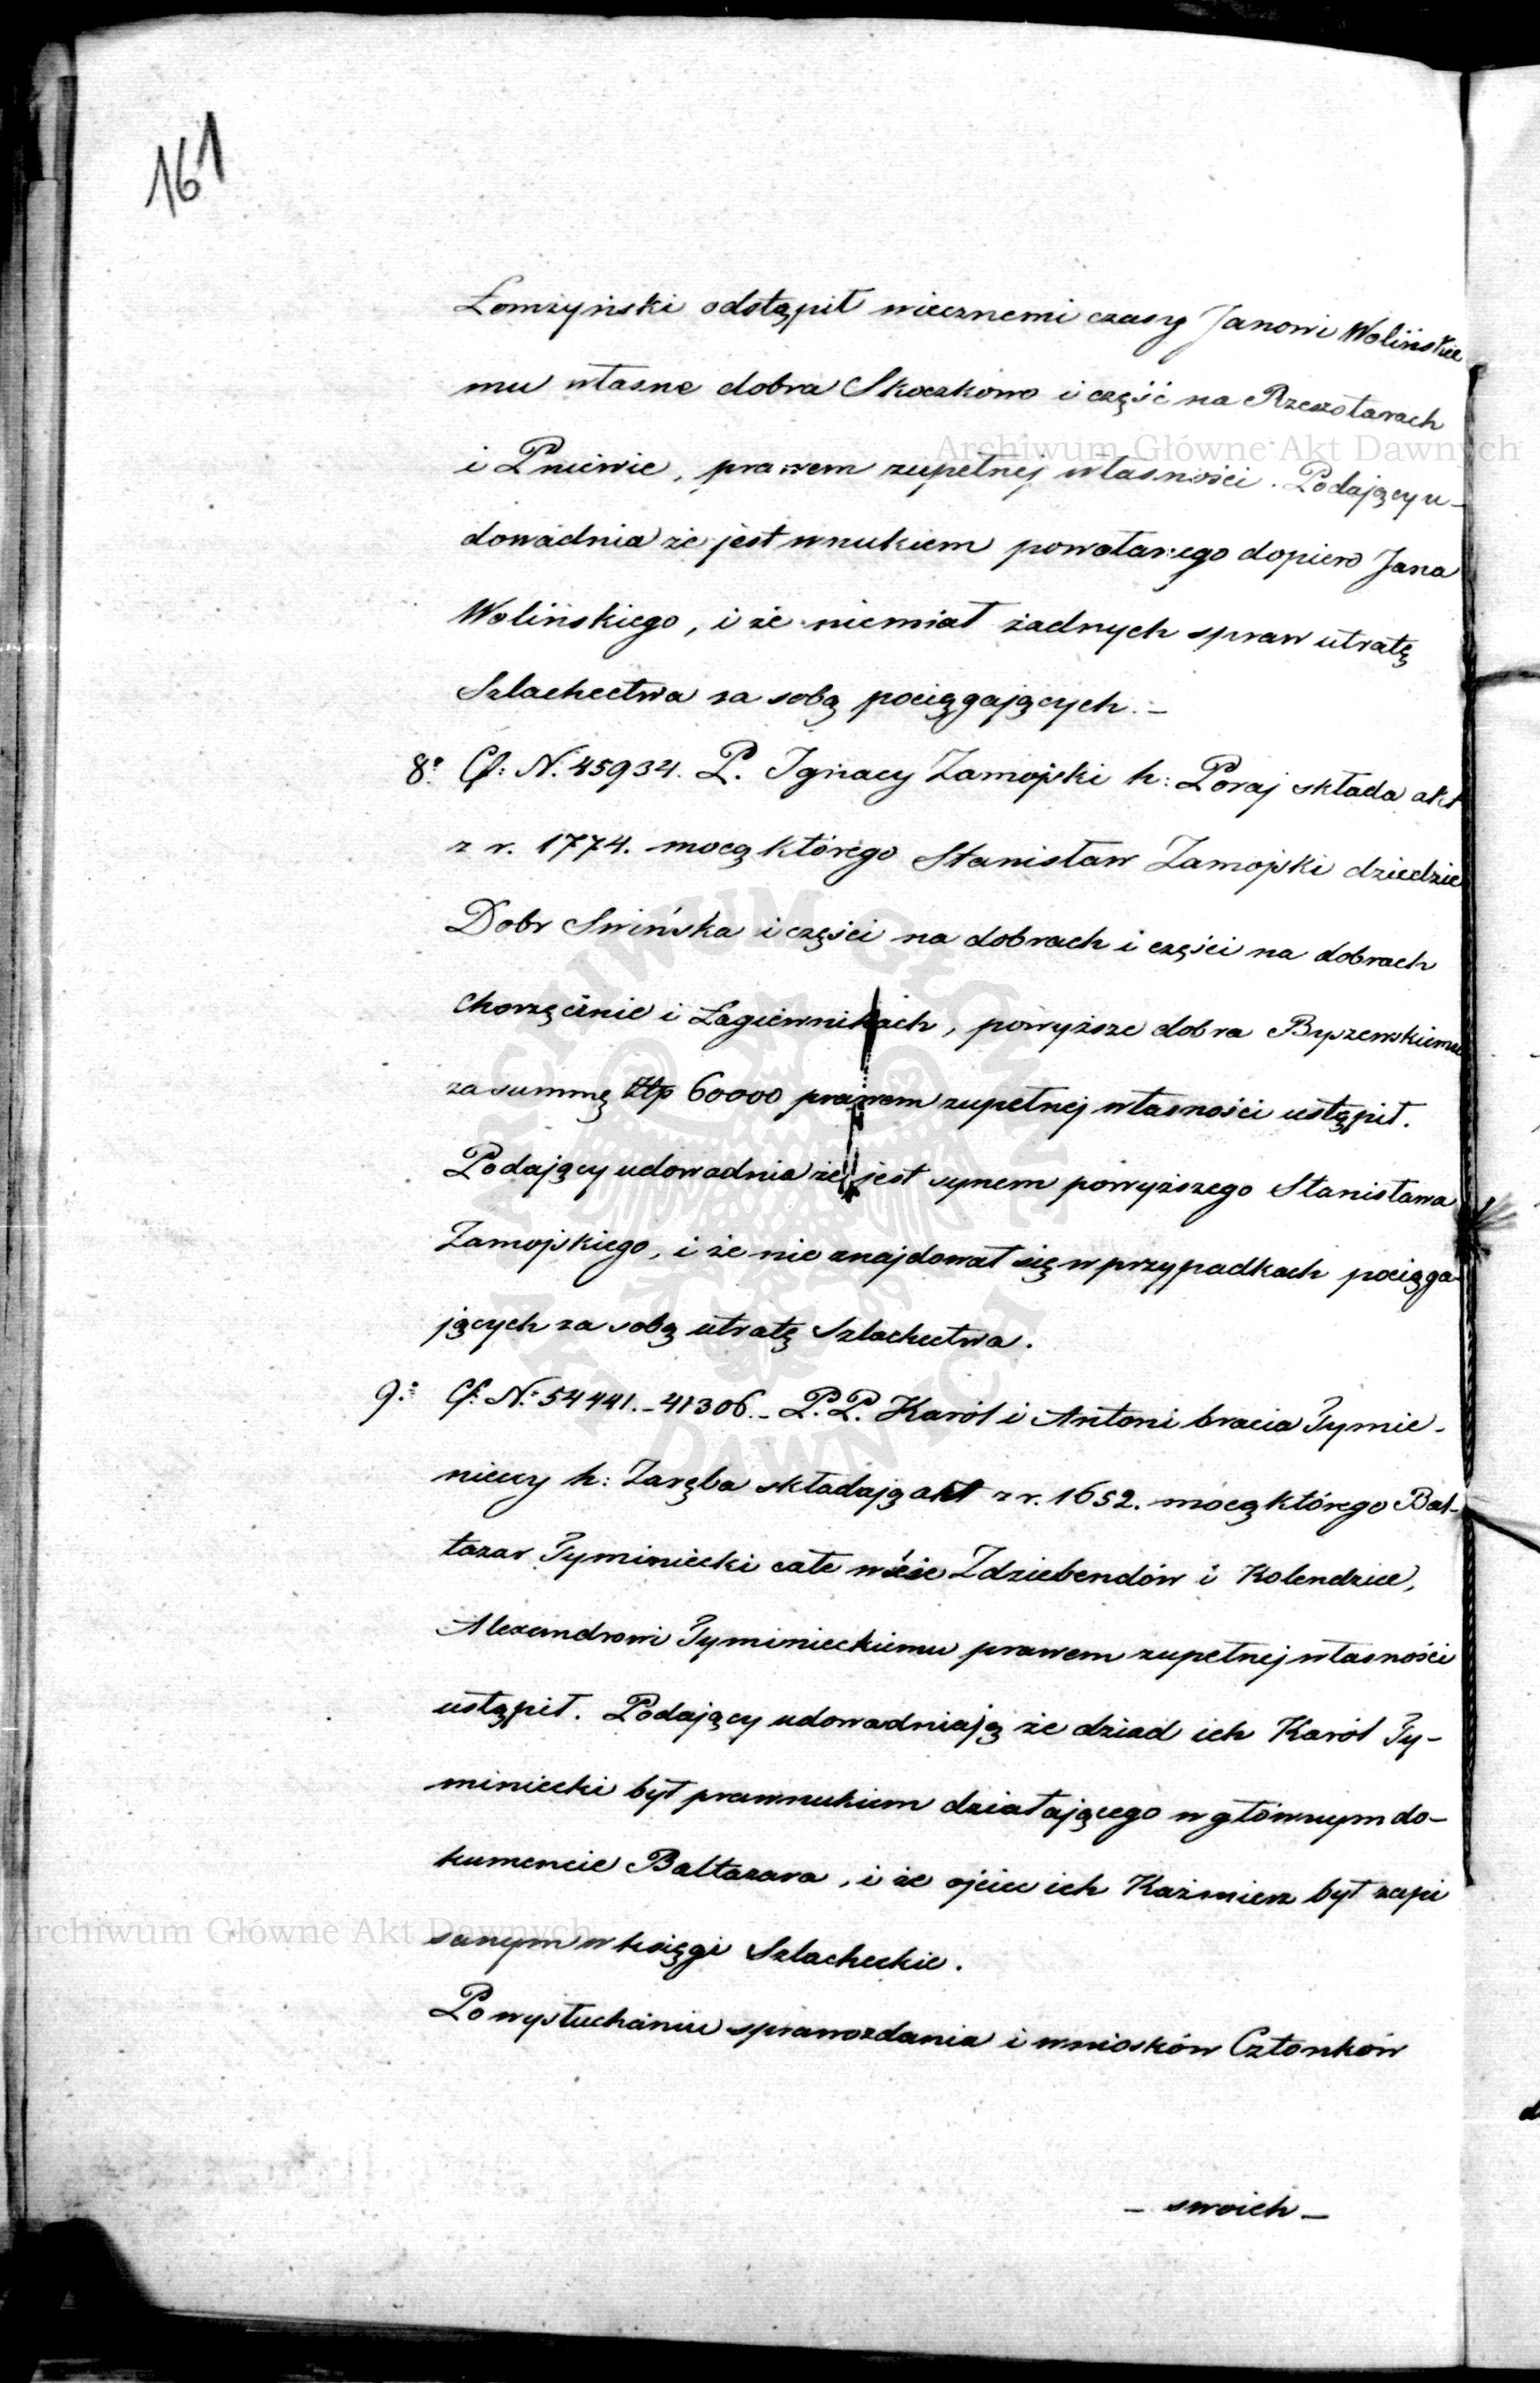 161
Łomżyński odstąpił wiecznemi czasy Janowi Wolińskie
mu własne dobra Skoczkowo i część na Rzeszotarach
i Pniewie, prawem zupełnej własności. Podający u-
dowadnia że jest wnukiem powołanego dopiero Jana
Wolińskiego, i że niemiał żadnych spraw utratę
Szlachectwa za sobą pociągających.–
8º Cf: N. 45934. P. Ignacy Zamojski h: Poraj składa akt
z r. 1774. mocą którego Stanisław Zamojski dziedzic
Dobr Swińska i części na dobrach i części na dobrach
Chorzęcinie i Łagiewnikach, powyższe dobra Byszewskiemu
za summę Złp 60000 prawem zupełnej własności ustąpił.
Podający udowadnia że jest synem powyższego Stanisława
Zamojskiego, i że nie znajdował się w przypadkach pociąga-
jących za sobą utratę Szlachectwa.
9º Cf: Nº 54441.–41306.– P.P. Karól i Antoni bracia Tymie-
nieccy h: Zaręba składają akt z r. 1652. mocą którego Bal-
tazar Tyminiecki całe wsie Zdziebendów i Kolendzice,
Alexandrowi Tyminieckiemu prawem zupełnej własności
ustąpił. Podający udowadniają że dziad ich Karól Ty-
miniecki był prawnukiem działającego w głównym do-
kumencie Baltazara, i że ojciec ich Kaźmierz był zapi
sanym w księgi Szlacheckie.
Po wysłuchaniu sprawozdania i wniosków Członków
– swoich –
Archiwum Główne Akt Dawnych
Archiwum Główne Akt Dawnych
ARCHIWUM GŁÓWNE
AKT DAWNYCH